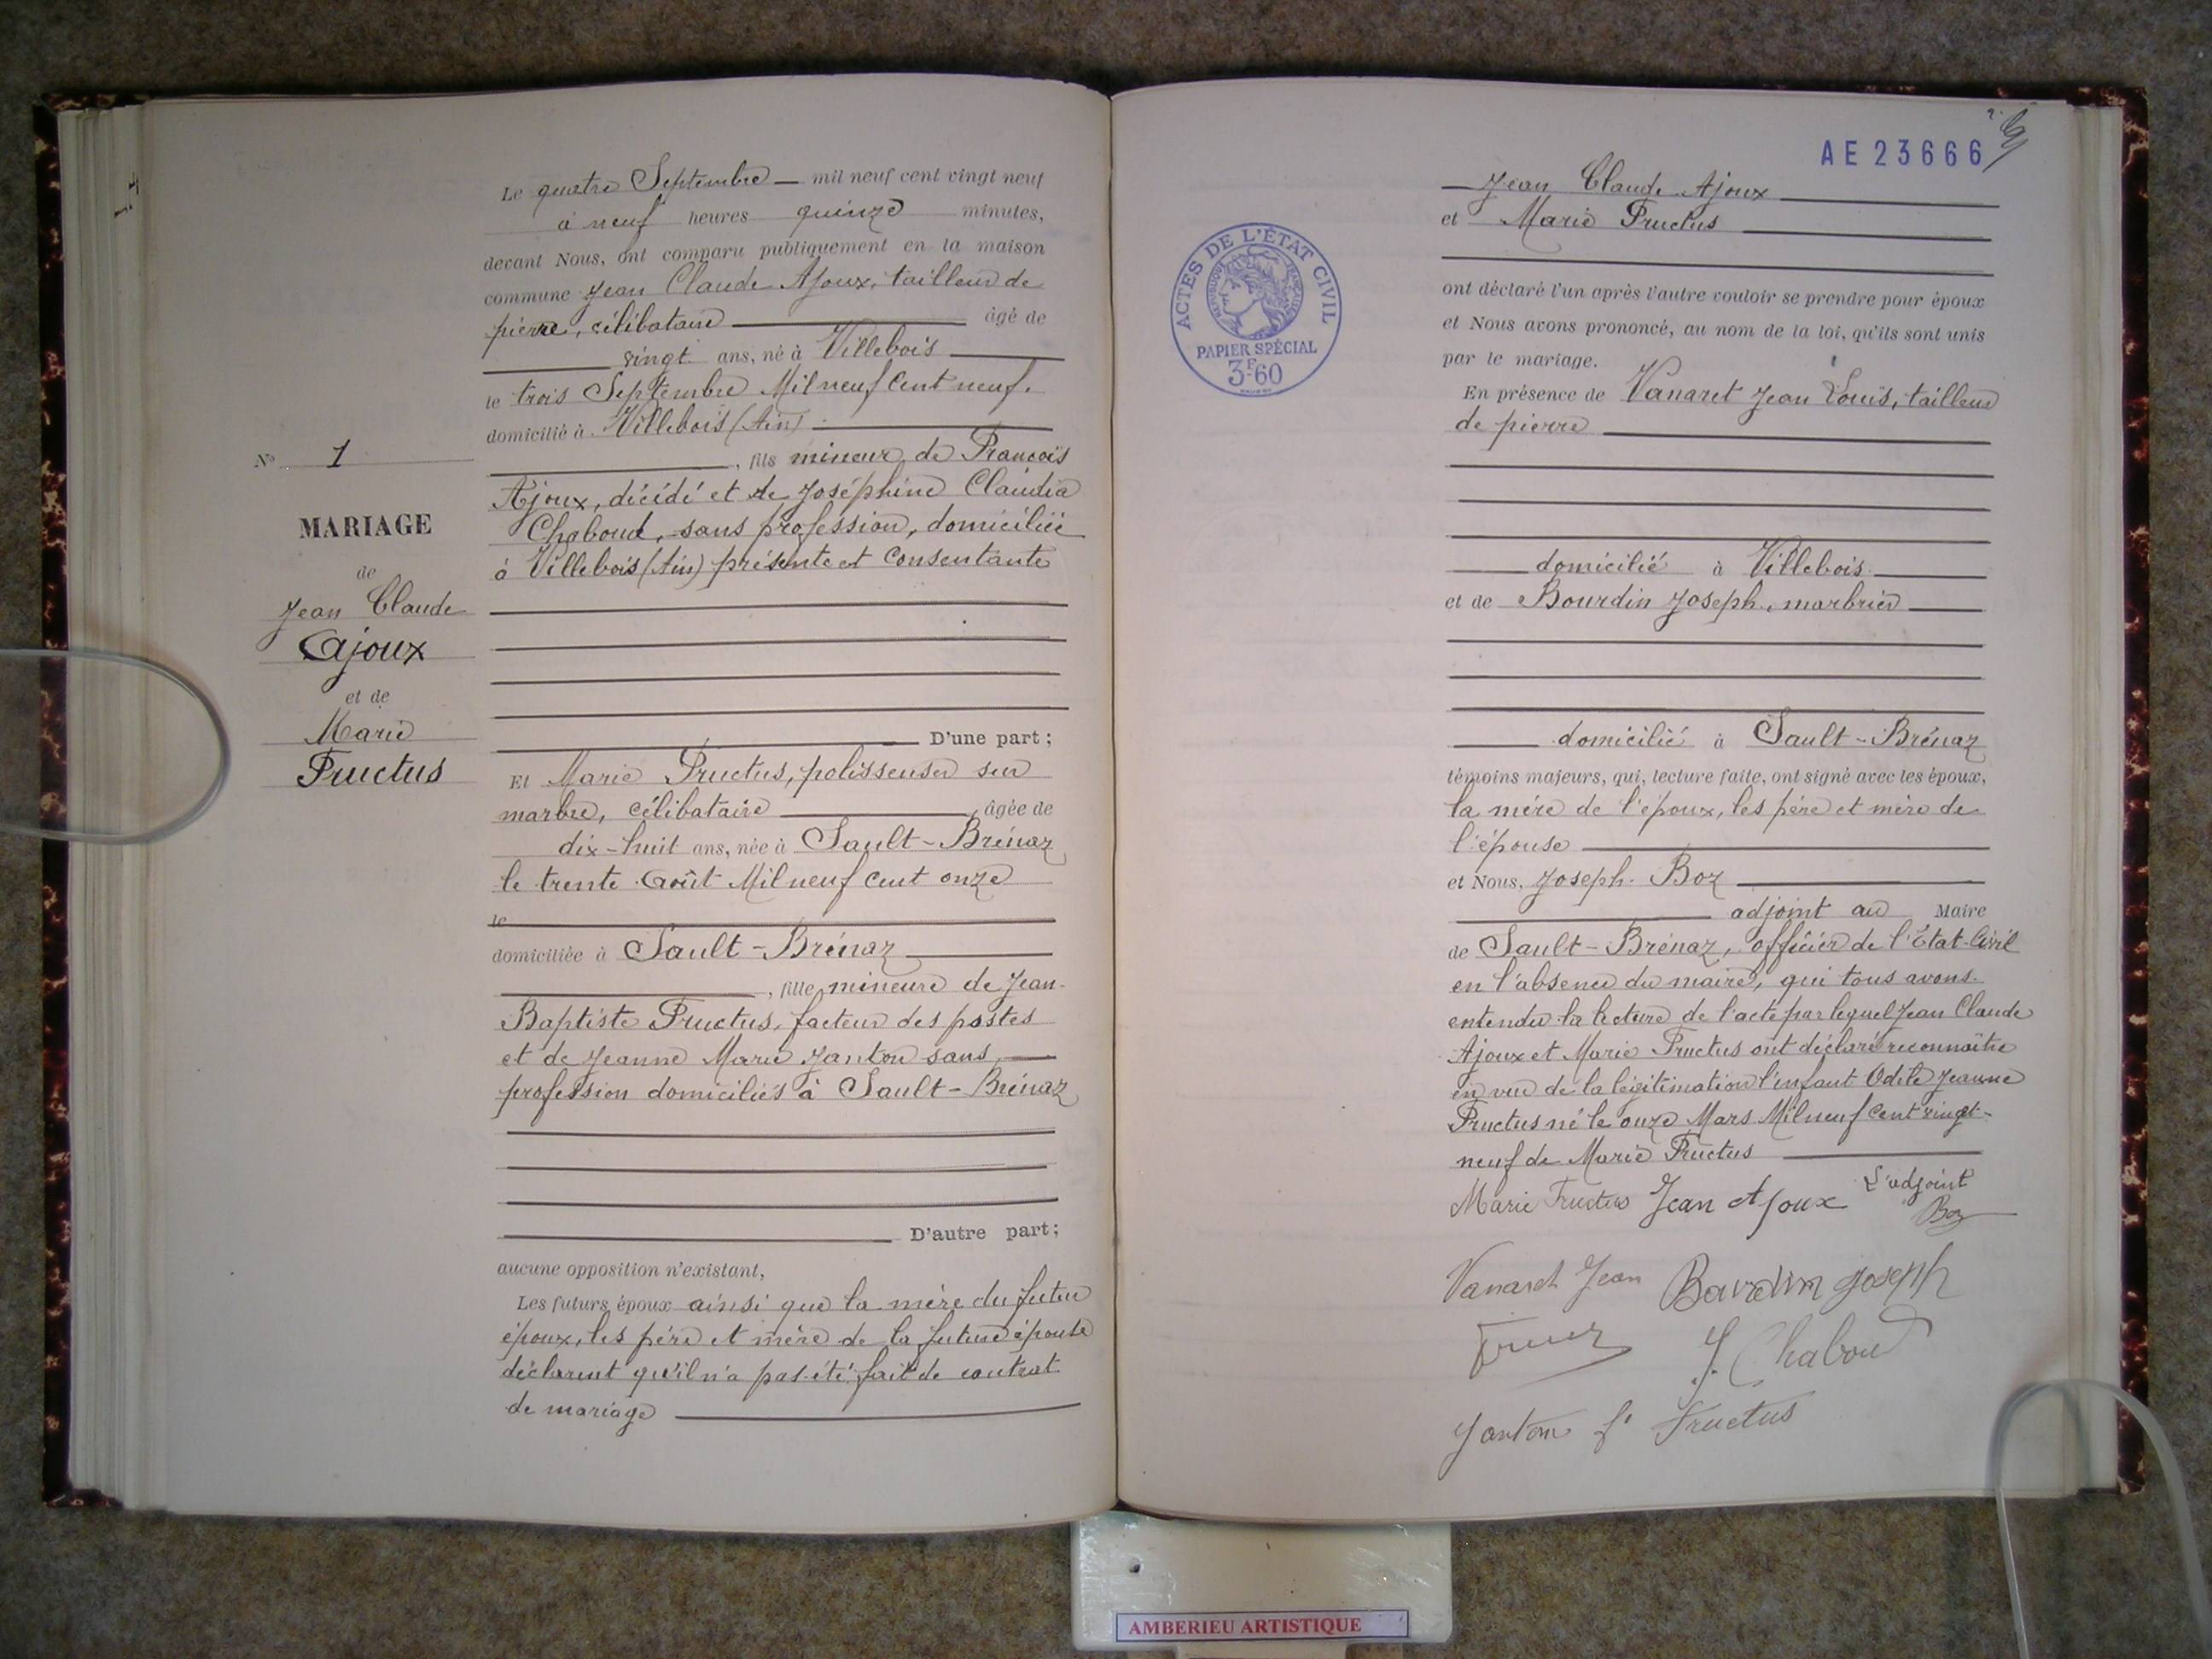 Le quatre Septembre mil neuf cent vingt neuf
à neuf heures quinze minutes,
devant Nous, ont comparu publiquement en la maison
commune Jean Claude Ajoux, tailleur de
pierre, célibataire âgé de
vingt ans, né à Villebois
le trois Septembre Mil neuf Cent neuf.
domicilié à Villebois (Ain)
, fils mineur de François
Ajoux, décédé et de Joséphine Claudia
Chaboud, sans profession, domiciliée
à Villebois (Ain) présente et Consentante
D'une part;
Et Marie Fructus, polisseuse sur
marbre, célibataire, âgée de
dix-huit ans, née à Sault-Brénaz
le trente Août Mil neuf cent onze
le
domiciliée à Sault-Brénaz
, fille mineure de Jean-
Baptiste Fructus, facteur des postes
et de Jeanne Marie Janton sans
profession domiciliés à Sault-Brénaz
D'autre part;
aucune opposition n'existant,
Les futurs époux ainsi que la mère du futur
époux, les père et mère de la future épouse
déclarent qu'il n'a pas été fait de contrat
de mariage
No 1
MARIAGE
de
Jean Claude
Ajoux
et de
Marie
Fructus
AE23666
Jean Claude Ajoux
et Marie Fructus
ACTES DE L'ÉTAT CIVIL
REPUBLIQUE FRANÇAISE
PAPIER SPÉCIAL
3F.60
ont déclaré l'un après l'autre vouloir se prendre pour époux
et Nous avons prononcé, au nom de la loi, qu'ils sont unis
par le mariage.
En présence de Vanaret Jean Louis, tailleur
de pierre
domicilié à Villebois
et de Bourdin Joseph, marbrier
domicilié à Sault-Brénaz
témoins majeurs, qui, lecture faite, ont signé avec les époux,
la mère de l'époux, les père et mère de
l'épouse
et Nous, Joseph Boz
adjoint au Maire
de Sault-Brénaz, officier de l'État-Civil
en l'absence du maire, qui tous avons
entendu la lecture de l'acte par lequel Jean Claude
Ajoux et Marie Fructus ont déclaré reconnaître
en vue de la légitimation l'enfant Odile Jeanne
Fructus né le onze Mars Mil neuf Cent vingt-
neuf de Marie Fructus
Marie Fructus Jean Ajoux L'adjoint
Boz
Vanaret Jean Bourdin Joseph
J. Chaboud
Janton f. Fructus
AMBERIEU ARTISTIQUE